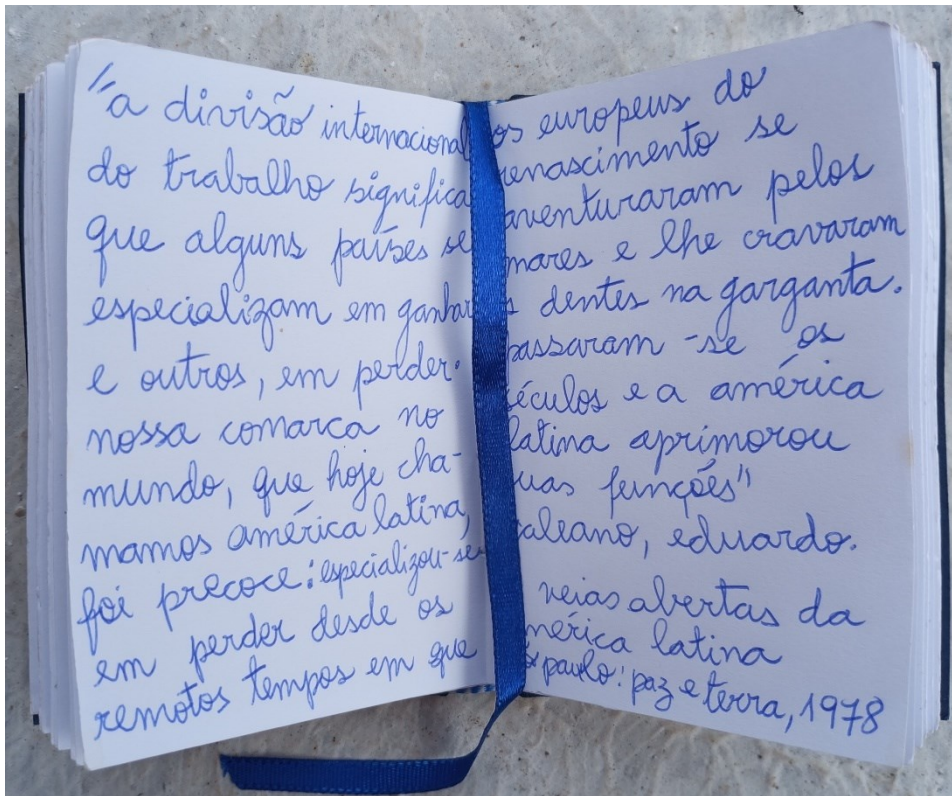 "a divisão internacional
do trabalho significa
que alguns países se
especializam em ganhar
e outros, em perder.
nossa comarca no
mundo, que hoje cha-
mamos américa latina,
foi precoce: especializou-se
em perder desde os
remotos tempos em que
os europeus do
renascimento se
aventuraram pelos
mares e lhe cravaram
s dentes na garganta.
passaram-se os
séculos e a américa
latina aprimorou
uas funções"
galeano, eduardo.
veias abertas da
mérica latina
paulo: paz e terra, 1978